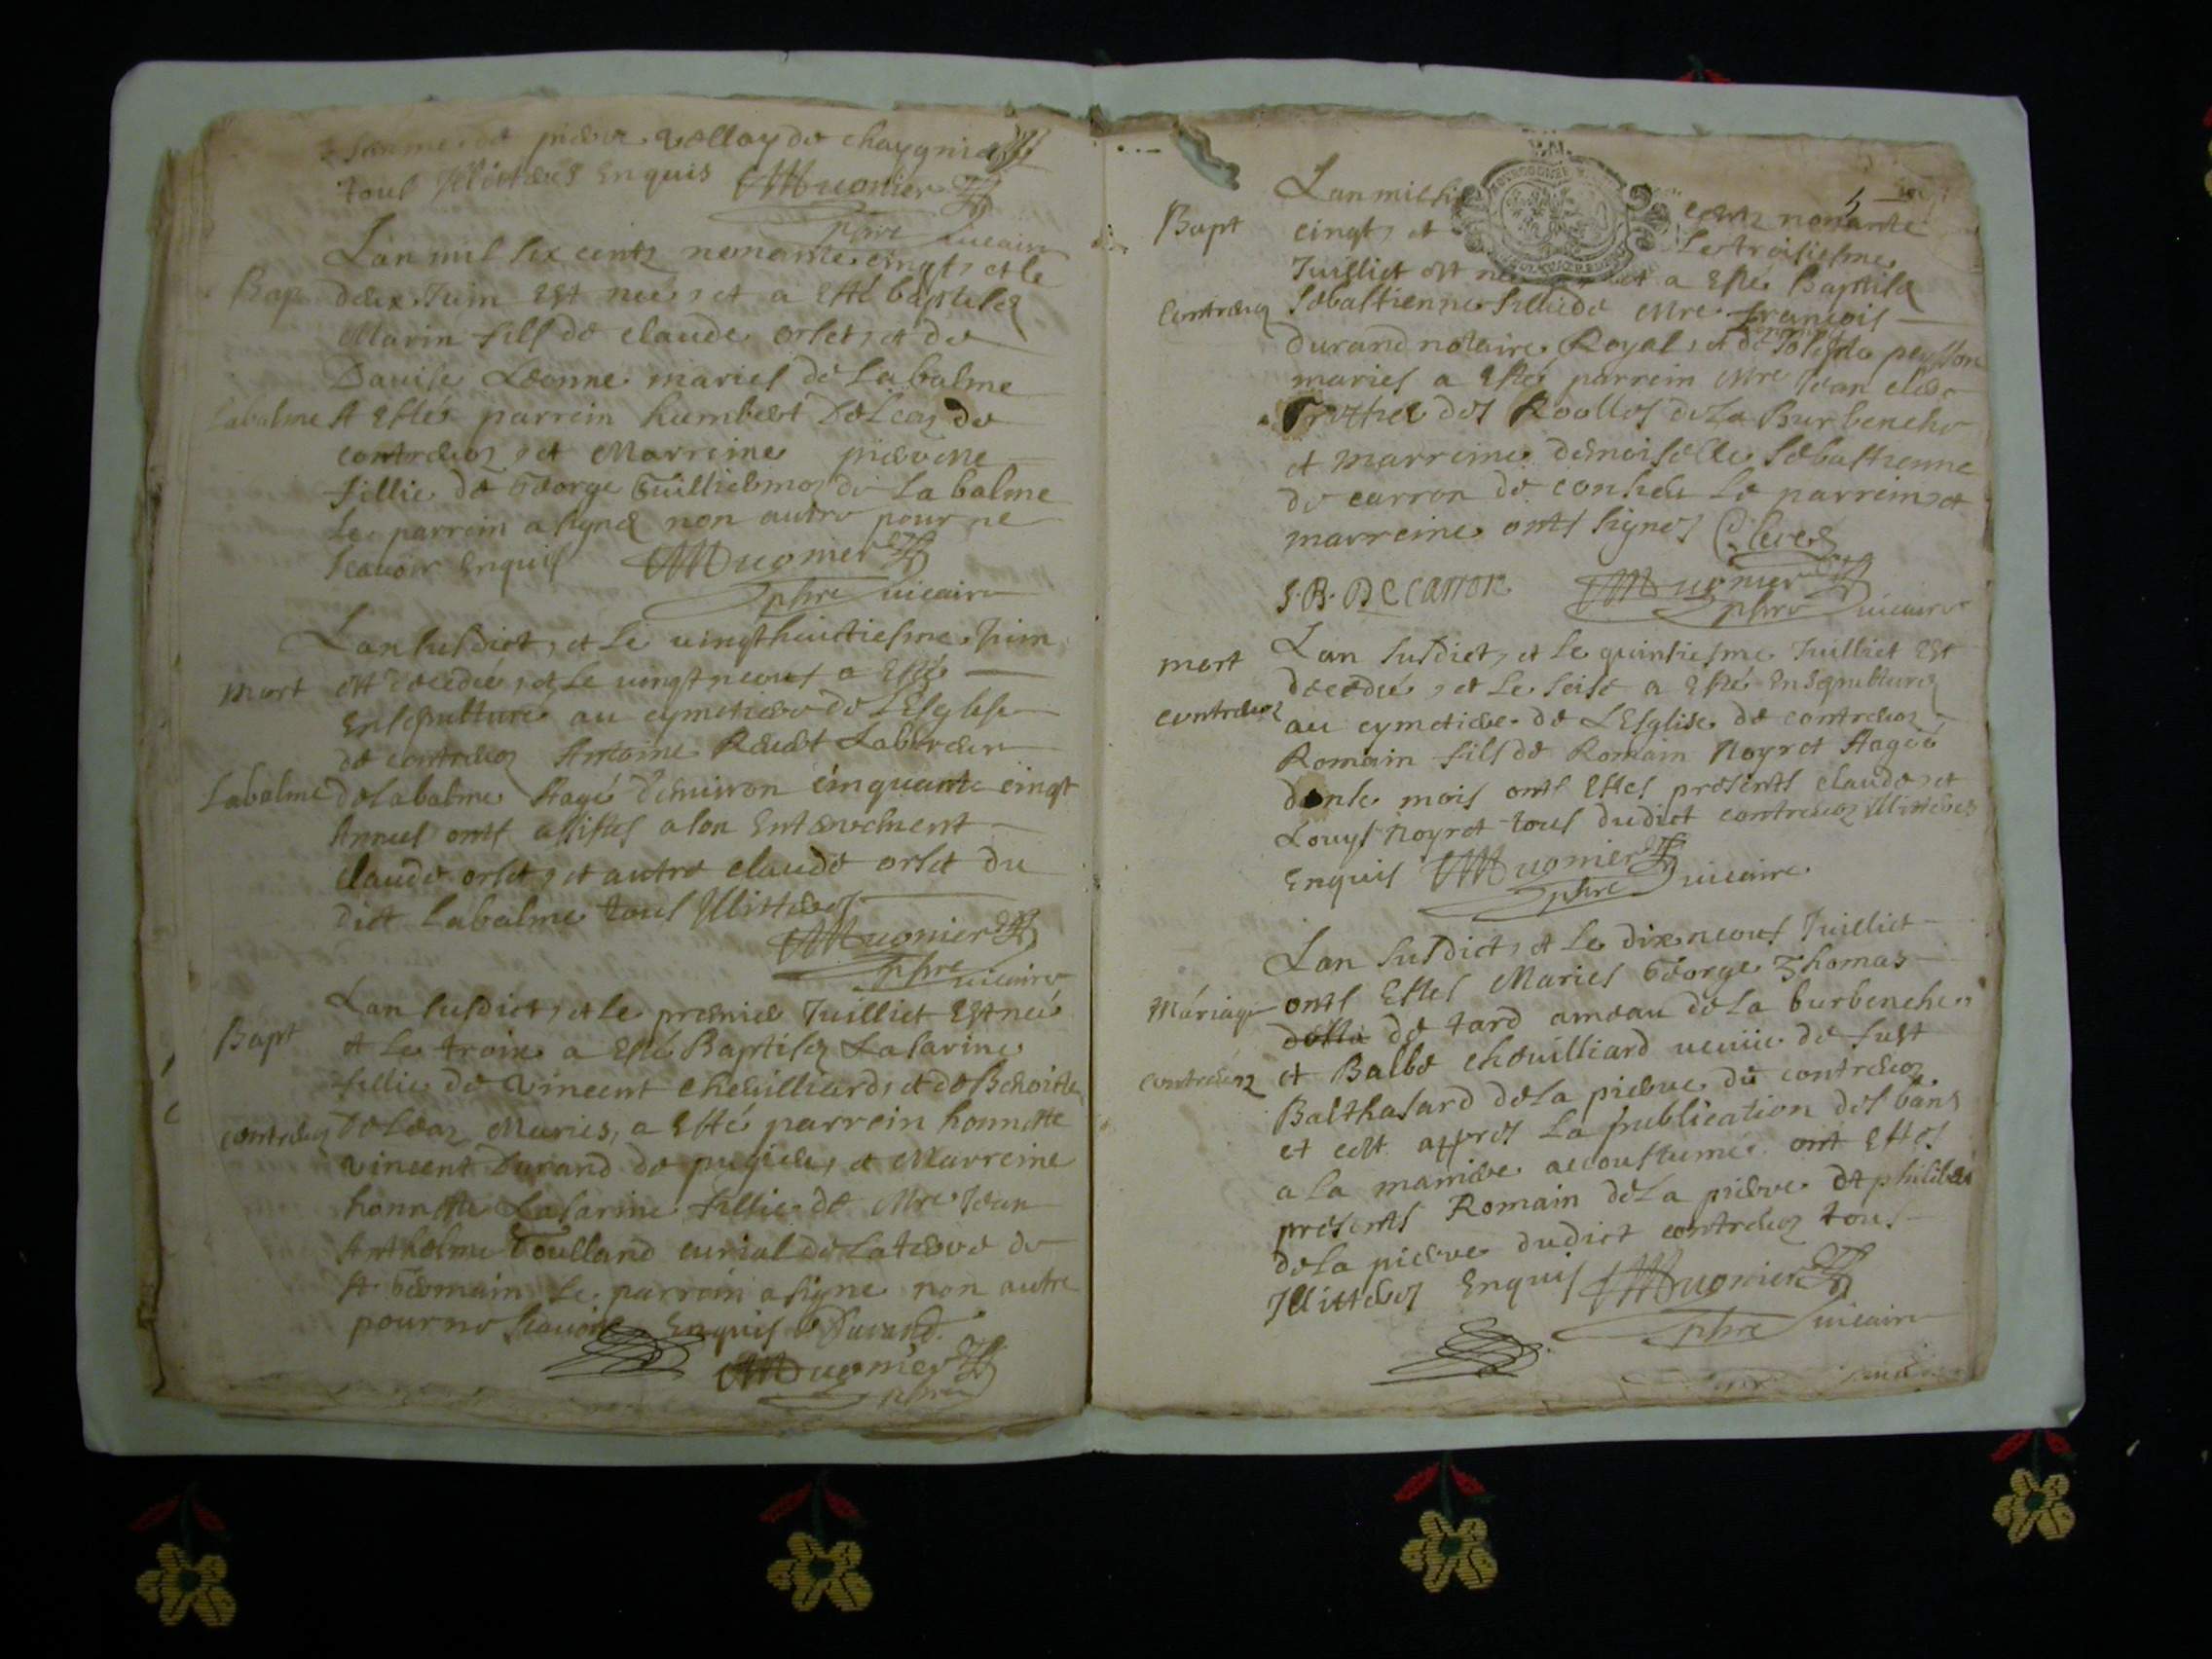 femme de pierre vellay de chaygnieu
tous Illiteres Enquis MHugonier
pbre vicaire
Bap
Lan mil six centz nonante cinqt, et le
deux Juin Est née, et a Esté baptisez
Marin fils de claude orset, et de
Dauise Leonne mariés de Labalme
Labalme
A Estés parrein humbert DeLean de
contreuoz, et Marreine pierrene
fillie de George Guilliermoz de La balme
Le parrein a signez non autre pour ne
scauoir Enquis MHugonier
pbre vicaire
mort
Lan susdict, et Le vingthuictiesme Juin
est decedée, et Le vingt neouf a Esté
Ensepulturé au cymetiere de LEsglise
de contreuoz Antoine Labordeur
Labalme
deLabalme Aagé denuiron cinquante cinqt
Annees onts assistes a son Enterrement
claude orset, et autre claude orset du
dict Labalme tous Illitteres
MHugonier
pbre vicaire
Bapt
Lan susdict, et Le premier Juilliet Est née
et Le troise a Esté Baptisez Lasarine
fillie de vincent cheuilliard, et de Benoiste
contreuoz
DeLean Maries, a Esté parrein honneste
vincent Durand de pugieu, et Marreine
honneste Lasarine fillie de Mre Jean
Anthelme Goulland curial de La terre de
st Germain Le parrein a signe non autre
pour ne scauoir Enquis Durand
MHugonier
pbre
5
Bapt
Lan mil six centz nonante
cinqt, et Le troisiesme
Juilliet est née et a Esté Baptisez
contreuoz
Sebastienne fillie de Mre francois
durand notaire Royal, et de peysson
maries a Esté parrein Mre Jean clere
Greffier des Roolles de La Burbenche
et marreine demoiselle Sebastienne
de carron de conseu Le parrein et
marreine onts signes Clere
S. B. DE CARRON MHugonier
pbre vicaire
mort
Lan susdict, et Le quinsiesme Juilliet Est
decedée, et Le seise a Esté Ensepulturez
contreuoz
au cymetiere de LEsglise de contreuoz
Romain fils de Romain Noyret Aagée
donse mois onts Estes presents claude, et
Louys Noyret tous dudict contreuoz Illitteres
Enquis MHugonier
pbre vicaire
Lan susdict, et Le dixneouf Juilliet
Máriage
onts Estes Maries George Thomas
de tard ameau de La burbenche
contreuoz
et Balbe cheuilliard veuue de fust
Balthasard de La pierre de contreuoz
et cest appres La publication des bans
a La maniere accoustumée ont Estes
presents Romain de La pierre et philibert
de La pierre dudict contreuoz tous
Illitteres Enquis MHugonier
pbre vicaire